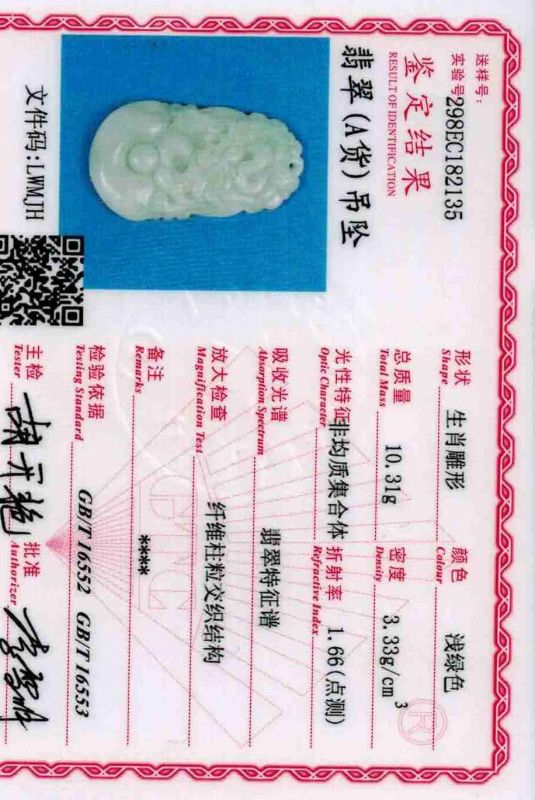 送样号:
实验号298EC182135
鉴定结果
RESULT OF IDENTIFICATION
翡翠(A货)吊坠
文件码:LWMJH
形状 生肖雕形 颜色 浅绿色
Shape Colour
总质量 10.31g 密度 3.33g/cm³
Total Mass Density
光性特征 非均质集合体 折射率 1.66(点测)
Optic Character Refractive Index
吸收光谱 翡翠特征谱
Absorption Spectrum
放大检查 纤维柱粒交织结构
Magnification Test
备注 ****
Remarks
检验依据 GB/T 16552 GB/T 16553
Testing Standard
主检 批准
Tester Authorizer
®